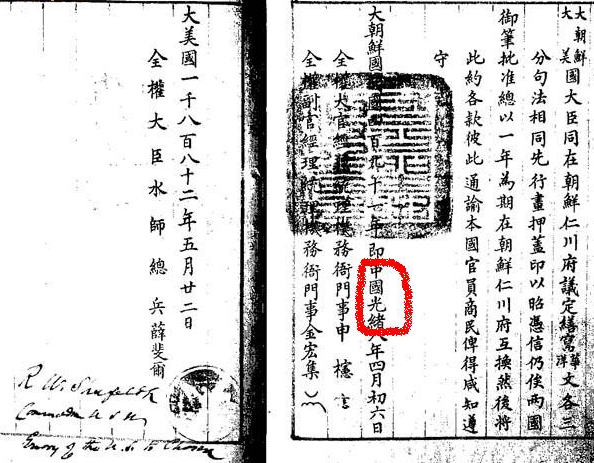 大朝鮮大美國大臣同在朝鮮仁川府議定繕寫華洋文各三
分句法相同先行畫押蓋印以昭憑信仍俟兩國
御筆批准總以一年為期在朝鮮仁川府互換然後將
此約各款彼此通諭本國官員商民俾得咸知遵
守
大朝鮮國開國四百九十一年即中國光緒八年四月初六日
全權大官經理統理機務衙門事申櫶
全權副官經理統理機務衙門事金宏集
大美國一千八百八十二年五月廿二日
全權大臣水師總兵薛斐爾
R. W. Shufeldt
Commodore U.S.N.
Envoy of the U.S. to Chosen